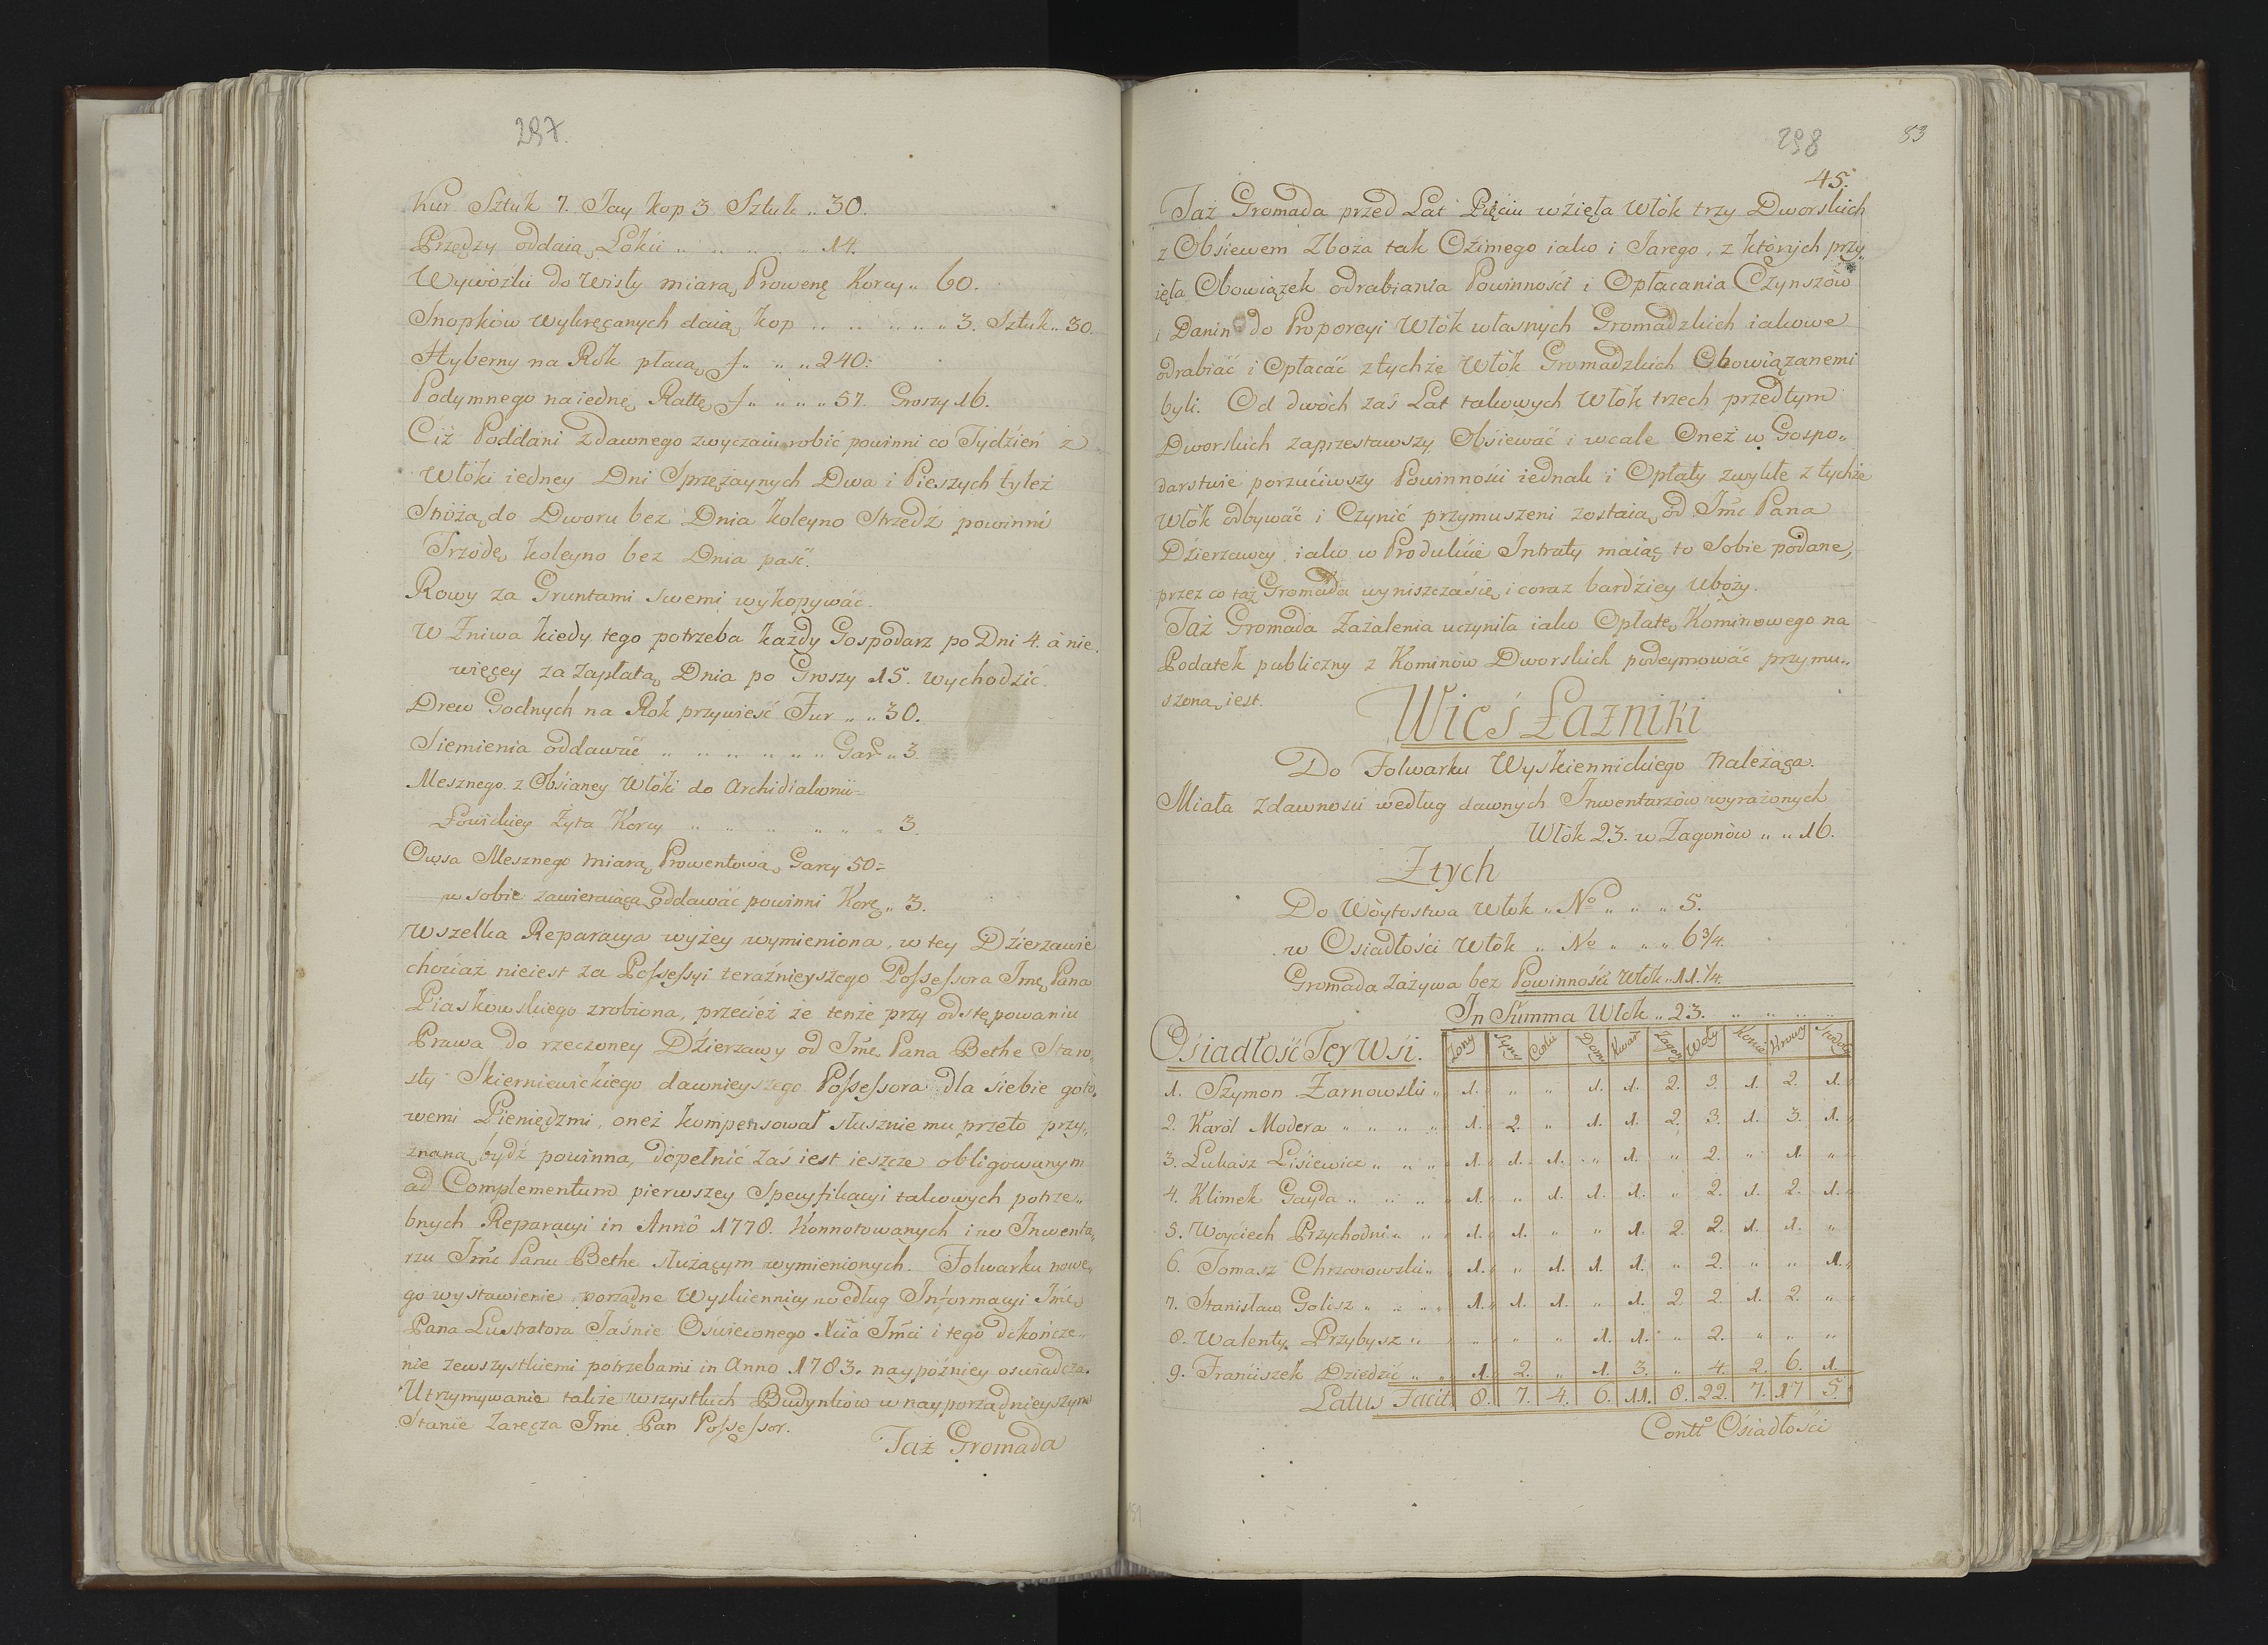 297.
Kur Sztuk 7. Jay kop 3 Sztuk „ 30.
Przędzy oddaią Łokci „ „ „ „ „ 14.
Wywózki do Wisły miarą Prowenę Korcy „ 60.
Snopków wykręcanych daią kop „ „ „ „ „ 3. Sztuk „ 30.
Hyberny na Rok płacą f „ „ „ 240:
Podymnego na iednę Rattę f „ „ „ „ 57. Groszy 16.
Ciż Poddani zdawnego zwyczaiu robić powinni co Tydźień z
Włóki iedney Dni Sprzężaynych Dwa i Pieszych tyleż
Stróżą do Dworu bez Dnia koleyno Strzedź powinni
Trzodę koleyno bez Dnia paść.
Rowy za Gruntami swemi wykopywać.
W Żniwa kiedy tego potrzeba każdy Gospodarz po Dni 4. à nie
więcey za zapłatą Dnia po Groszy 15. wychodzić.
Drew Godnych na Rok przywieść Fur „ „ 30.
Siemienia oddawać „ „ „ „ „ „ Gar „ 3.
Mesznego z Obśianey Włóki do Archidiakonii=
Łowickiey Żyta Korcy „ „ „ „ „ „ 3.
Owsa Mesznego miarą Prowentową Garcy 50=
w sobie zawieraiącą oddawać powinni Korę „ 3.
Wszelka Reparacya wyżey wymieniona, w tey Dźierzawie
chociaż nieiest za Possessyi teraźnieyszego Possessora Imę Pana
Piaskowskiego zrobiona, przecież że tenże przy odstępowaniu
Prawa do rzeczoney Dźierzawy od Imć Pana Bethe Staro„
sty Skierniewickiego dawnieyszego Possessora dla śiebie goto„
wemi Pieniędzmi, oneż kompensował słusznie mu przeto przy„
znana bydź powinna, dopełnić zaś iest ieszcze obligowanym
ad Complementum pierwszey Specyfikacyi takowych potrze„
bnych Reparacyi in Annô 1778. Konnotowanych i w Inwenta„
rzu Imć Panu Bethe służącym wymienionych. Folwarku nowe„
go wystawienie porządne Wyskiennicy według Informacyi Imć
Pana Lustratora Jaśnie Oświeconego Xcia Imci i tego dokończe„
nie zewszystkiemi potrzebami in Anno 1783. naypóźniey oswiadcza.
Utrzymywanie także wszystkich Budynków w nayporządnieyszym
Stanie Zaręcza Imć Pan Possessor.
Taż Gromada
298
53
45.
Taż Gromada przed Lat Pięciu wźięła Włók trzy Dworskich
z Obśiewem Zboża tak Oźimego iako i Jarego, z których przy„
ięła Obowiązek odrabiania Powinności i Opłacania Czynszów
i Danin do Proporcyi Włók własnych Gromadzkich iakowe
odrabiać i Opłacać ztychże Włók Gromadzkich Obowiązanemi
byli. Od dwóch zaś Lat takowych Włók trzech przedtym
Dworskich zaprzestawszy Obśiewać i wcale Oneż w Gospo„
darstwie porzuciwszy Powinności iednak i Opłaty zwykłe z tychże
Włók odbywać i Czynić przymuszeni zostaią od Imć Pana
Dźierzawcy iako w Produkcie Intraty maiąc to Sobie podane,
przez co taż Gromada wyniszcza się i coraz bardźiey Uboży.
Taż Gromada Zażalenia uczyniła iako Opłatę Kominowego na
Podatek publiczny z Kominów Dworskich podeymować przymu„
szona iest.
Wieś Łaźniki
Do Folwarku Wyskiennickiego Należąca.
Miała zdawności według dawnych Inwentarzów wyrażonych
Włók 23. w Zagonów „ „ 16.
Ztych
Do Wòytostwa Włók „ No „ „ „ 5.
w Osiadłości Włók „ No „ „ „ 6 3/4.
Gromada Zażywa bez Powinności Włók „ 11. 1/4.
In Summa Włók „ 23. „ „ „ „
Osiadłość Tey Wsi. Żony Syny Córki Domy Kwart Zagon Woły Konie Krowy Stodoły
1. Szymon Żarnowski „ 1. „ „ 1. 1. 2. 3. 1. 2. 1.
2. Karól Modera „ „ „ „ 1. 2. „ 1. 1. 2. 3. 1. 3. 1.
3. Łukasz Lisiewicz „ „ „ 1. 1. 1. „ 1. „ 2. „ 1. „
4. Klimek Gayda „ „ „ „ 1. „ 1. 1. 1. „ 2. 1. 2. 1.
5. Woyciech Przychodni „ „ 1. 1. „ „ 1. 2. 2. 1. 1. „
6. Tomasz Chrzanowski „ „ 1. „ 1. 1. 1. „ 2. „ „ 1.
7. Stanisław Golisz „ „ „ „ 1. 1. 1. „ 1. 2. 2. 1. 2. „
8. Walenty Przybysz „ „ „ „ „ 1. 1. „ 2. „ „ „
9. Franciszek Dziedzic „ „ 1. 2. „ 1. 3. „ 4. 2. 6. 1.
Latus Facit 8. 7. 4. 6. 11. 8. 22. 7. 17 5.
Contto Ośiadłości